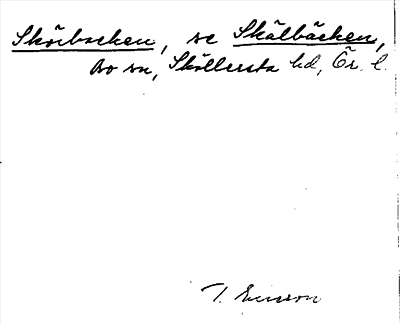 Skörbacken, se Skälbäcken,
Bo sn, Sköllersta hd, Ör. l.
T. Ericson